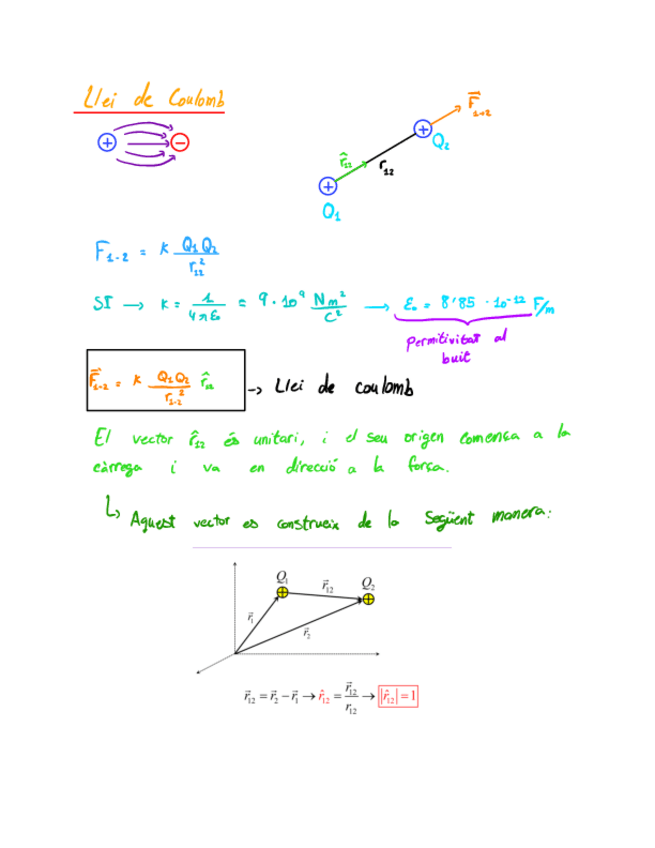 Llei de Coulomb
+ −
F⃗₁→₂
+ Q₂
r̂₁₂ r₁₂
+
Q₁
F₁₋₂ = K Q₁Q₂ / r₁₂²
SI → K = 1 / 4πε₀ = 9·10⁹ Nm² / C² → ε₀ = 8'85 · 10⁻¹² F/m
permitivitat al
buit
F⃗₁₋₂ = K Q₁Q₂ / r₁₋₂² r̂₁₂ → Llei de coulomb
El vector r̂₁₂ és unitari, i el seu origen comença a la
càrrega i va en direcció a la força.
↳ Aquest vector es construeix de la següent manera:
Q₁ r⃗₁₂ Q₂
r⃗₁ r⃗₂
r⃗₁₂ = r⃗₂ − r⃗₁ → r̂₁₂ = r⃗₁₂ / r₁₂ → |r̂₁₂| = 1